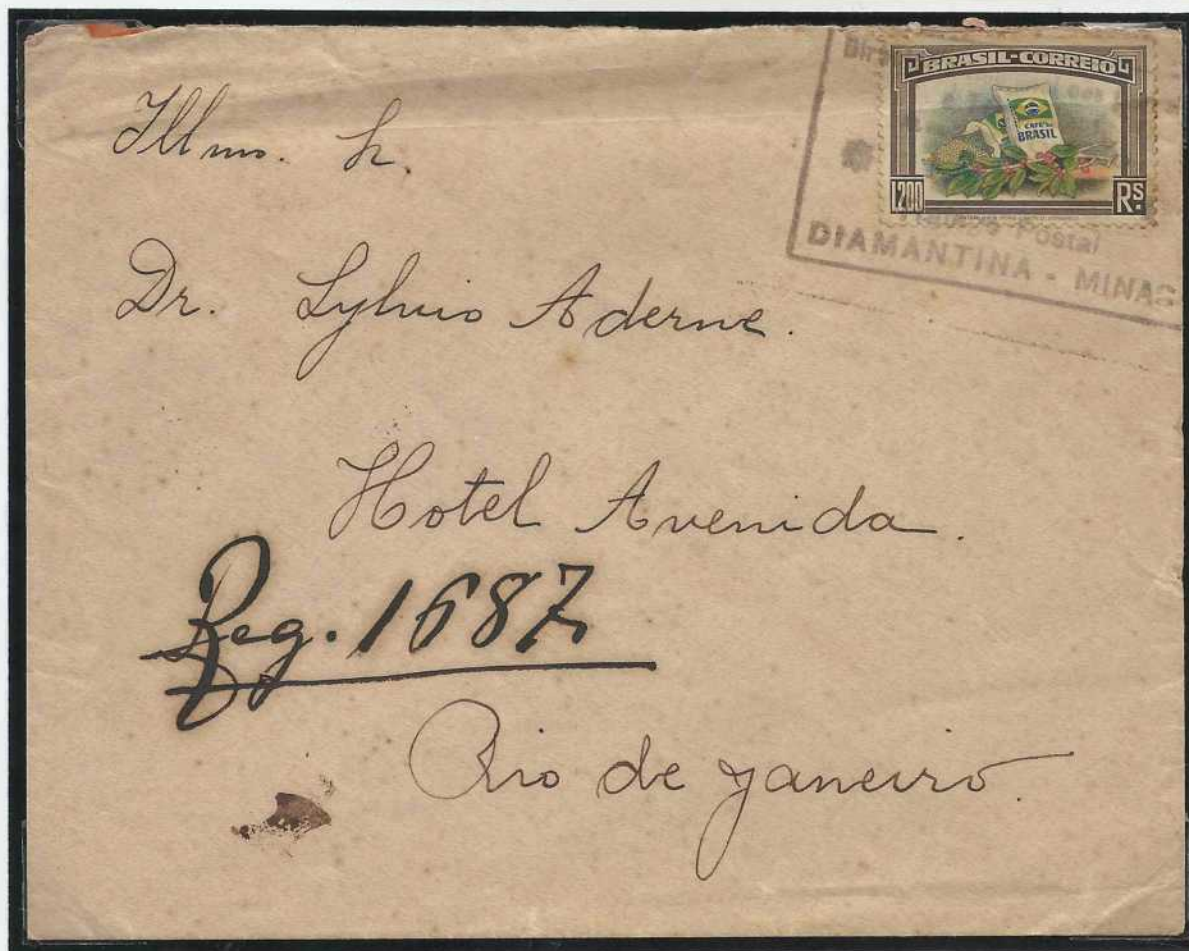 BRASIL-CORREIO
CAFÉ do
BRASIL
1200 RS.
Postal
DIAMANTINA - MINAS
Illmo. Sr.
Dr. Sylvio Aderne.
Hotel Avenida.
Reg. 1687
Rio de Janeiro.